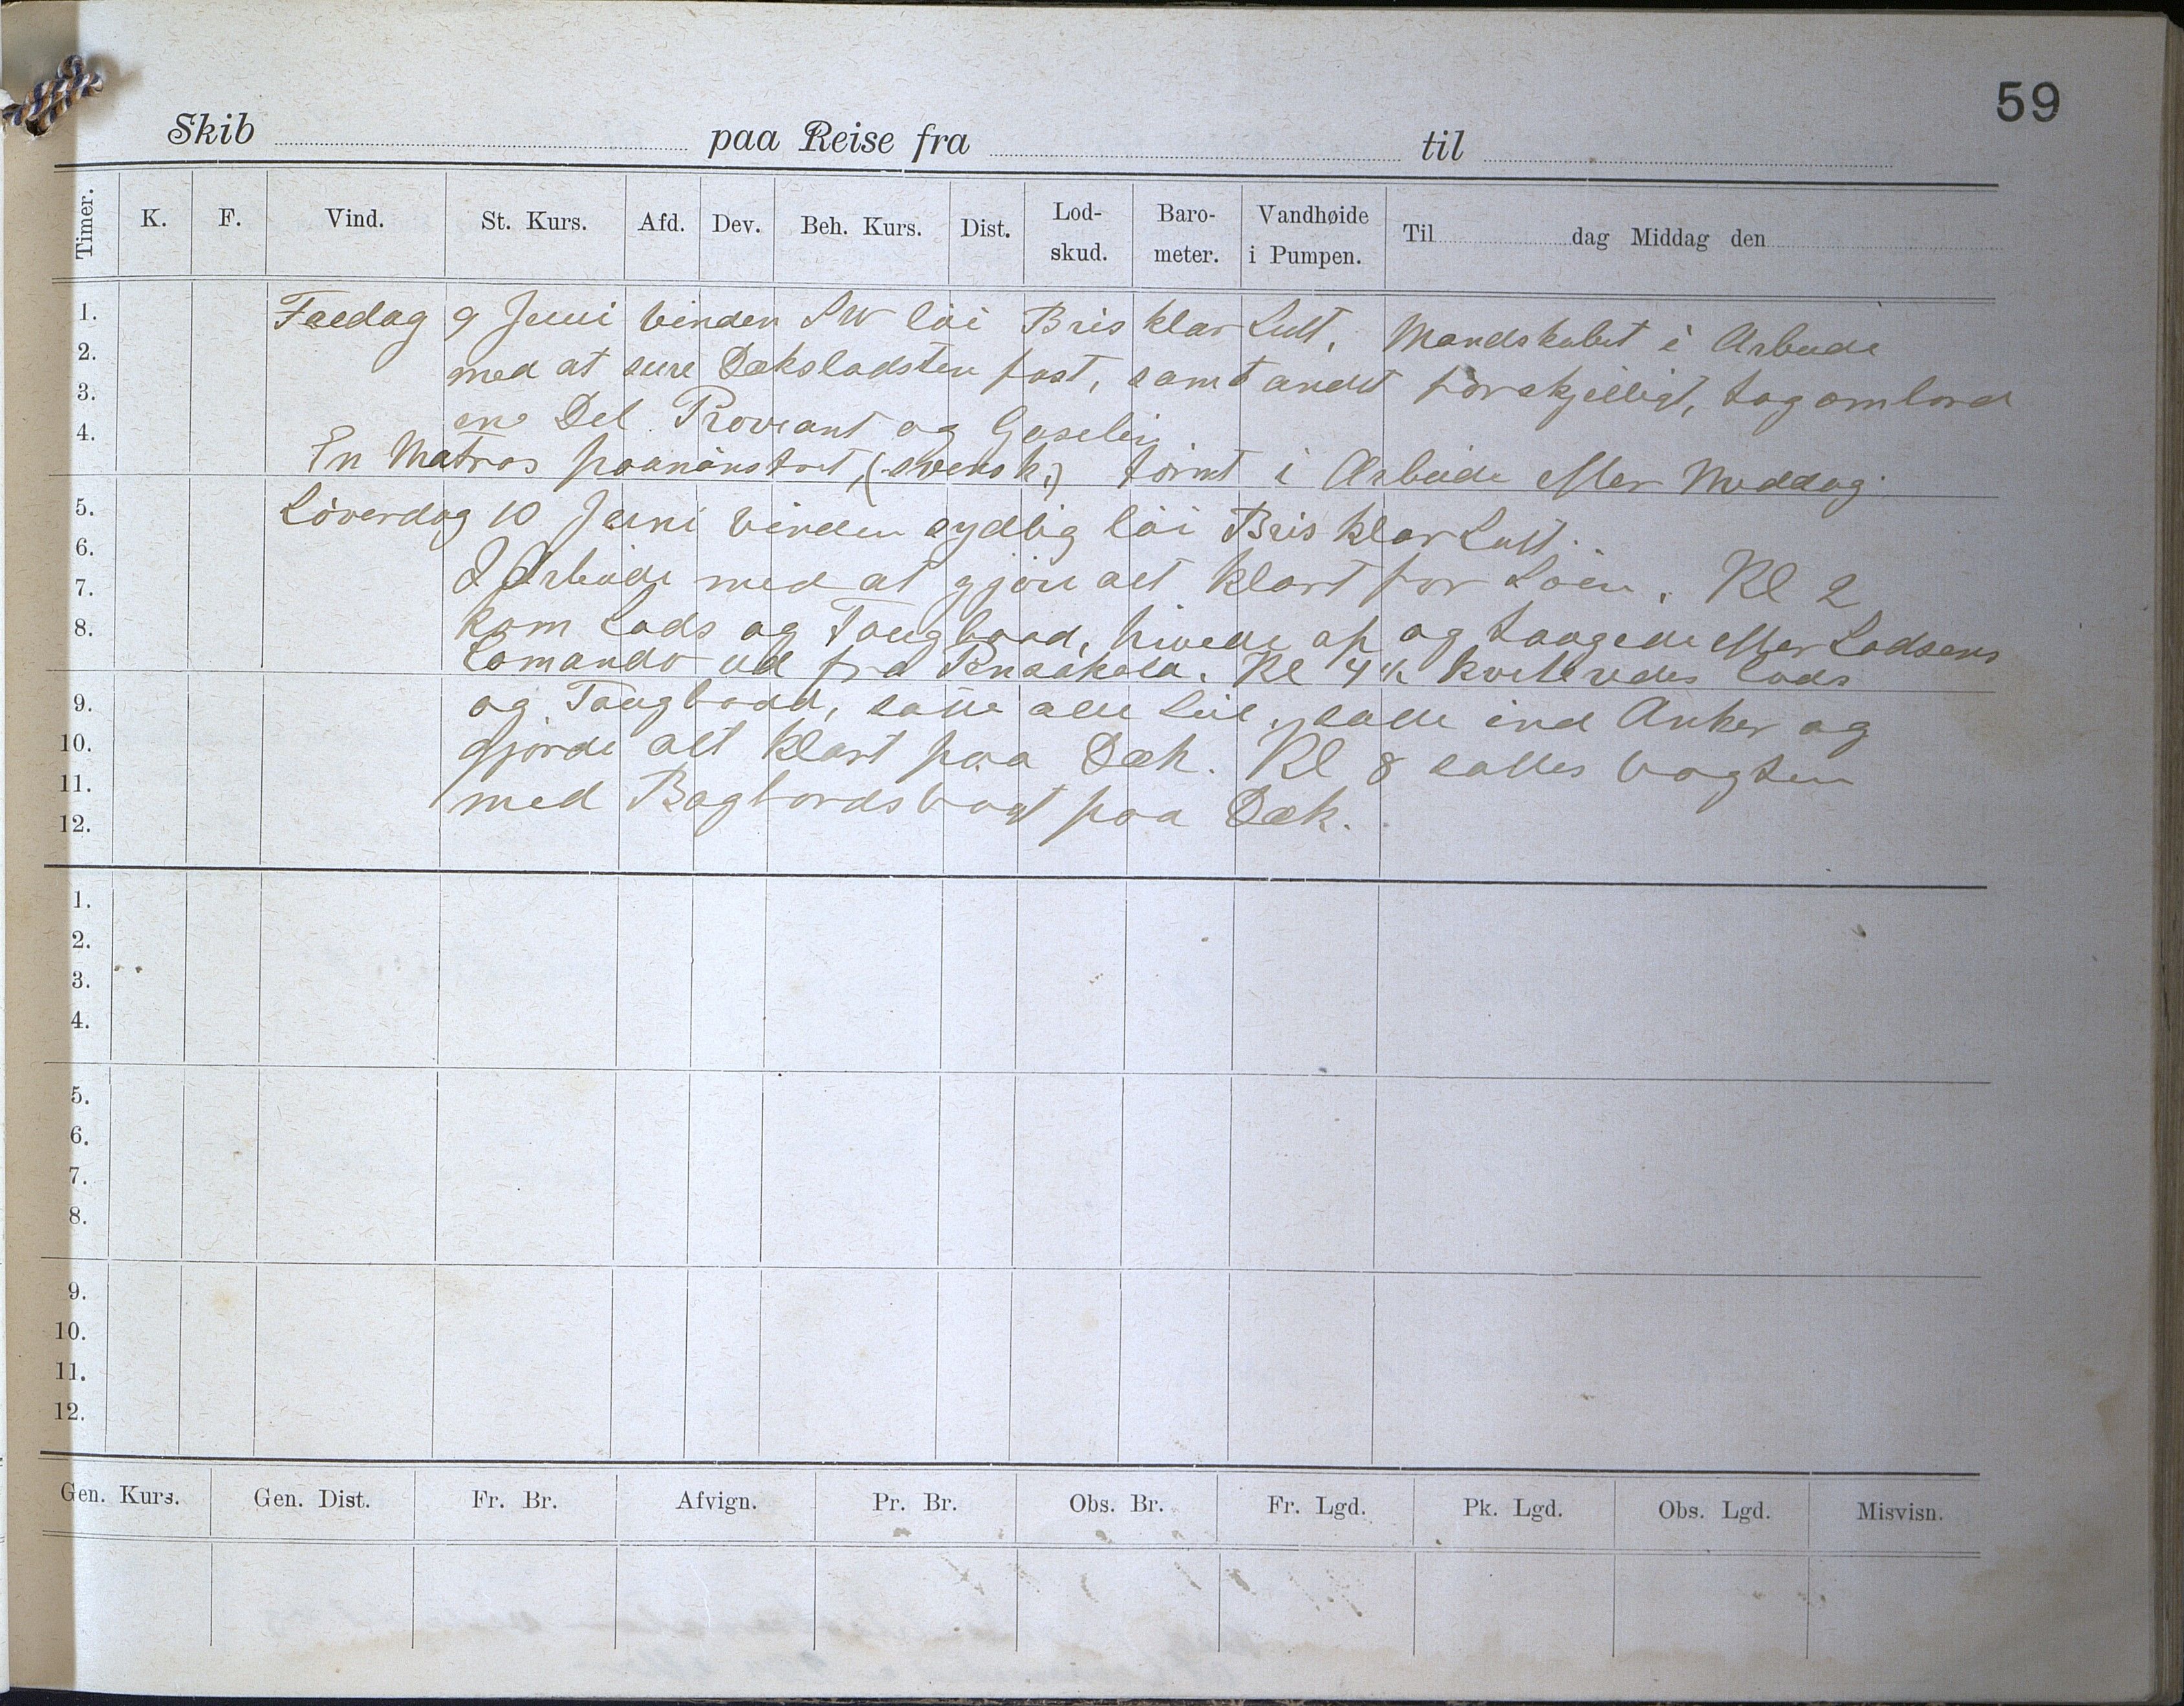 59
Skib paa Reise fra til
Timer. K. F. Vind. St. Kurs. Afd. Dev. Beh. Kurs. Dist. Lod-skud. Baro-meter. Vandhøide i Pumpen. Til dag Middag den
1.
2.
3.
4.
5.
6.
7.
8.
9.
10.
11.
12.
Fredag 9 Juni Vinden SW löi Bris klar Luft. Mandskabet i Arbeide
med at sure Dæksladsten fast, samt andet forskjelligt, tog ombord
en Del Proviant og
En Matros paamönstret, (svensk.) törnt i Arbeide efter Middag.
Löverdag 10 Juni Vinden sydlig löi Bris klar Luft.
I Arbeide med at gjöre alt klart for Söen. Kl 2
kom Lods og Taugbaad, hivede op og taugede efter Lodsens
Comando ud fra Pensakola. Kl 4½ kvitteredes Lods
og Taugbaad, satte alle Seil, satte ind Anker og
gjorde alt klart paa Dæk. Kl 8 sattes Vagten
med Bagbordsvagt paa Dæk.
1.
2.
3.
4.
5.
6.
7.
8.
9.
10.
11.
12.
Gen. Kurs. Gen. Dist. Fr. Br. Afvign. Pr. Br. Obs. Br. Fr. Lgd. Pk. Lgd. Obs. Lgd. Misvisn.